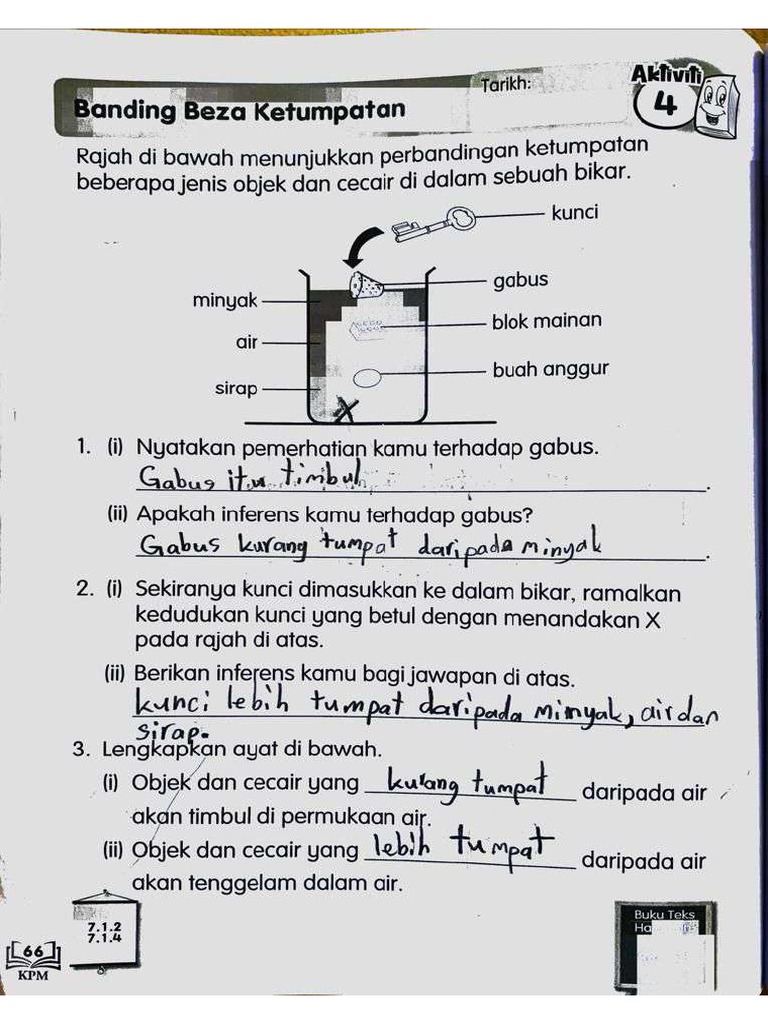 Tarikh:
Aktiviti
4
Banding Beza Ketumpatan
Rajah di bawah menunjukkan perbandingan ketumpatan
beberapa jenis objek dan cecair di dalam sebuah bikar.
kunci
gabus
minyak
blok mainan
air
buah anggur
sirap
X
1. (i) Nyatakan pemerhatian kamu terhadap gabus.
Gabus itu timbul.
(ii) Apakah inferens kamu terhadap gabus?
Gabus kurang tumpat daripada minyak.
2. (i) Sekiranya kunci dimasukkan ke dalam bikar, ramalkan
kedudukan kunci yang betul dengan menandakan X
pada rajah di atas.
(ii) Berikan inferens kamu bagi jawapan di atas.
kunci lebih tumpat daripada minyak, air dan
sirap.
3. Lengkapkan ayat di bawah.
(i) Objek dan cecair yang kurang tumpat daripada air
akan timbul di permukaan air.
(ii) Objek dan cecair yang lebih tumpat daripada air
akan tenggelam dalam air.
7.1.2
7.1.4
66
KPM
Buku Teks